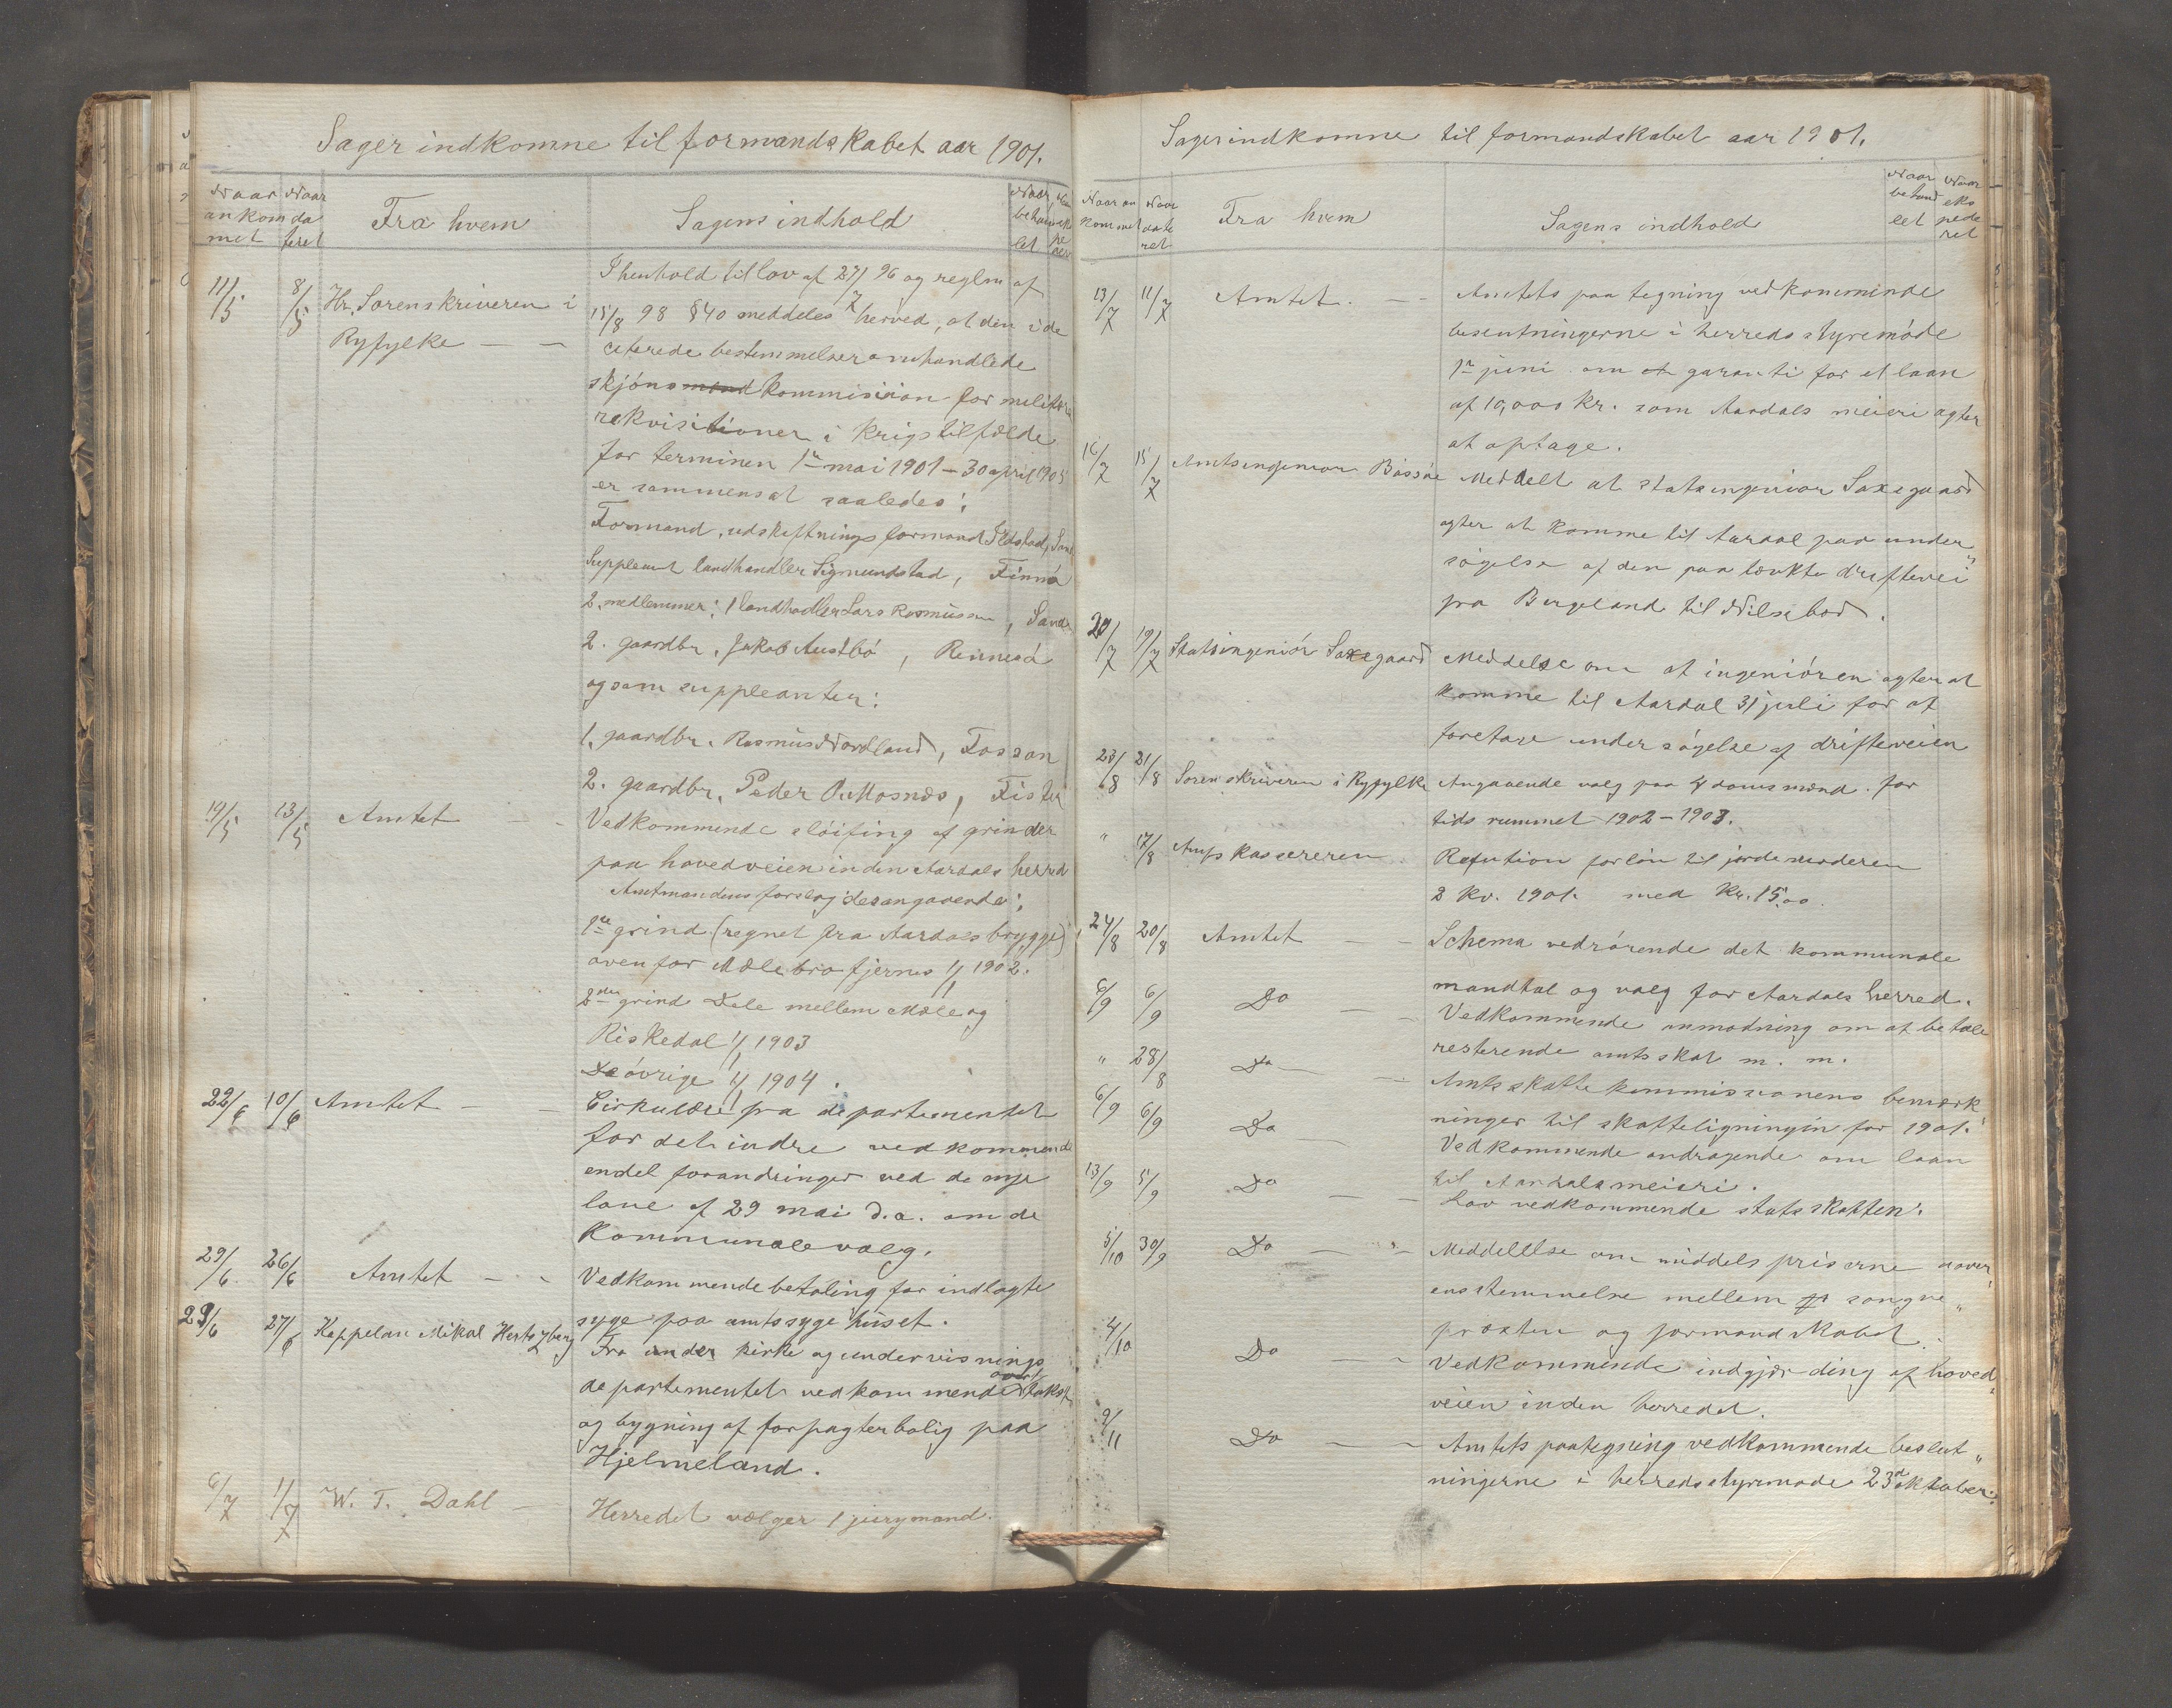 Sager indkomne til formandskabet aar 1901.
Naar ankommet Naar dateret Fra hvem Sagens indhold Naar behandlet
11/5 8/5 Hr. Sorenskriveren i Ryfylke — —
I henhold til lov af 27/7 96 og reglm af
15/8 98 §40 meddeles herved, at den i de
citerede bestemmelser omhandlede
skjøns kommission for militære
rekvisitioner i krigstilfælde
for terminen 1ste mai 1901 – 30 april 1905
er sammensat saaledes:
Formand, udskiftningsformand Eldstad, Sand
Suppleant landhandler Sigmundstad, Finnø
2. medlemmer: 1 landhandler Lars Rasmussen, Sand
2. gaardbr. Jakob Austbø, Rennesø
og som suppleanter:
1. gaardbr. Rasmus Nordland, Fossan
2. gaardbr. Peder O. Mosnæs, Fister
19/5 13/5 Amtet — — Vedkommende sløifing af grinder
paa hovedveien inden Aardals herred
Amtmandens forslag desangaaende:
1ste grind (regnet fra Aardalsbrygge)
ovenfor Mæle bro fjernes 1/1 1902.
2den grind Dele mellem Mæle og
Riskedal 1/1 1903
De øvrige 1/1 1904.
22/6 10/6 Amtet — — Cirkulære fra departementet
for det indre vedkommende
endel forandringer ved de nye
love af 29 mai d.a. om de
kommunale valg.
29/6 26/6 Amtet — — Vedkommende betaling for indlagte
syge paa amtssygehuset.
29/6 27/6 Kappelan Mikal Hertzberg Fra under kirke og undervisnings
departementet vedkommende takst
og bygning af forpagterbolig paa
Hjelmeland.
6/7 1/7 W. T. Dahl — Herredet vælger 1 jurymand.
Sager indkomne til formandskabet aar 1901.
Naar ankommet Naar dateret Fra hvem Sagens indhold Naar behandlet Naar ekspederet
13/7 11/7 Amtet. — — Amtets paategning vedkommende
beslutningerne i herredsstyremøde
1ste juni om garanti for et laan
af 10,000 kr. som Aardals meieri agter
at optage.
16/7 15/7 Amtsingeniør Bassøe Meddelt at statsingeniør Saxegaard
agter at komme til Aardal paa under„
søgelse af den paatænkte driftevei
fra Bergeland til Nilsebod.
20/7 19/7 Statsingeniør Saxegaard Meddelse om at ingeniøren agter at
komme til Aardal 31 juli for at
foretage undersøgelse af drifteveien
23/8 21/8 Sorenskriveren i Ryfylke Angaaende valg paa 4 domsmænd for
tidsrummet 1902–1903.
" 17/8 Amtskassereren Refution for løn til jordemoderen
2 kv. 1901. med Kr. 15.00.
24/8 20/8 Amtet — — Schema vedrørende det kommunale
mandtal og valg for Aardals herred.
6/9 6/9 Do — — Vedkommende anmodning om at betale
resterende amtsskat m. m.
" 28/8 Do — — Amtsskattekommissionens bemærk
ninger til skatteligningin for 1901.
6/9 6/9 Do — Vedkommende andragende om laan
til Aardals meieri.
13/9 5/9 Do — — Lov vedkommende statsskatten.
5/10 30/9 Do — — Meddelelse om middelspriserne over„
ensstemmelse mellem sogne„
præsten og formandskabet.
4/10 Do — — Vedkommende indgjærding af hoved„
veien inden herredet.
9/11 Do — — Amtets paategning vedkommende beslut„
ningerne i herredsstyremøde 23de oktober.